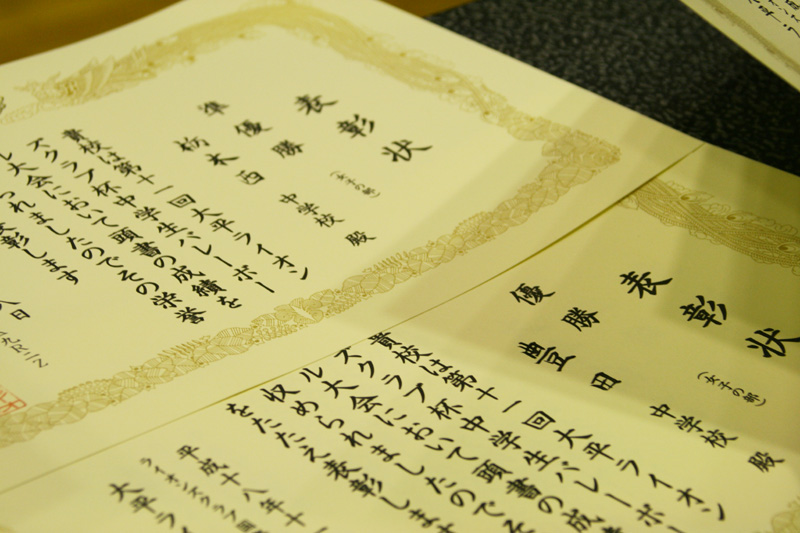 表彰状
(女子の部)
準優勝
栃木西中学校殿
貴校は第十一回大平ライオン
ズクラブ杯中学生バレーボー
ル大会において頭書の成績を
られましたのでその栄誉
表彰します
八日
表彰状
(女子の部)
優勝
豊田中学校殿
貴校は第十一回大平ライオン
ズクラブ杯中学生バレーボー
ル大会において頭書の成
収められましたのでそ
をたたえ表彰します
平成十八年十
ライオンズクラブ国
大平ライ